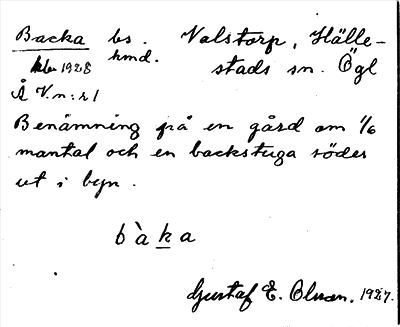 Backa bs. Valstorp, Hälle-
hmd. stads sn. Ögl
1928
Å V.n:r 1
Benämning på en gård om 1/6
mantal och en backstuga söder
ut i byn.
bàka
Gustaf E. Olsson. 1927.